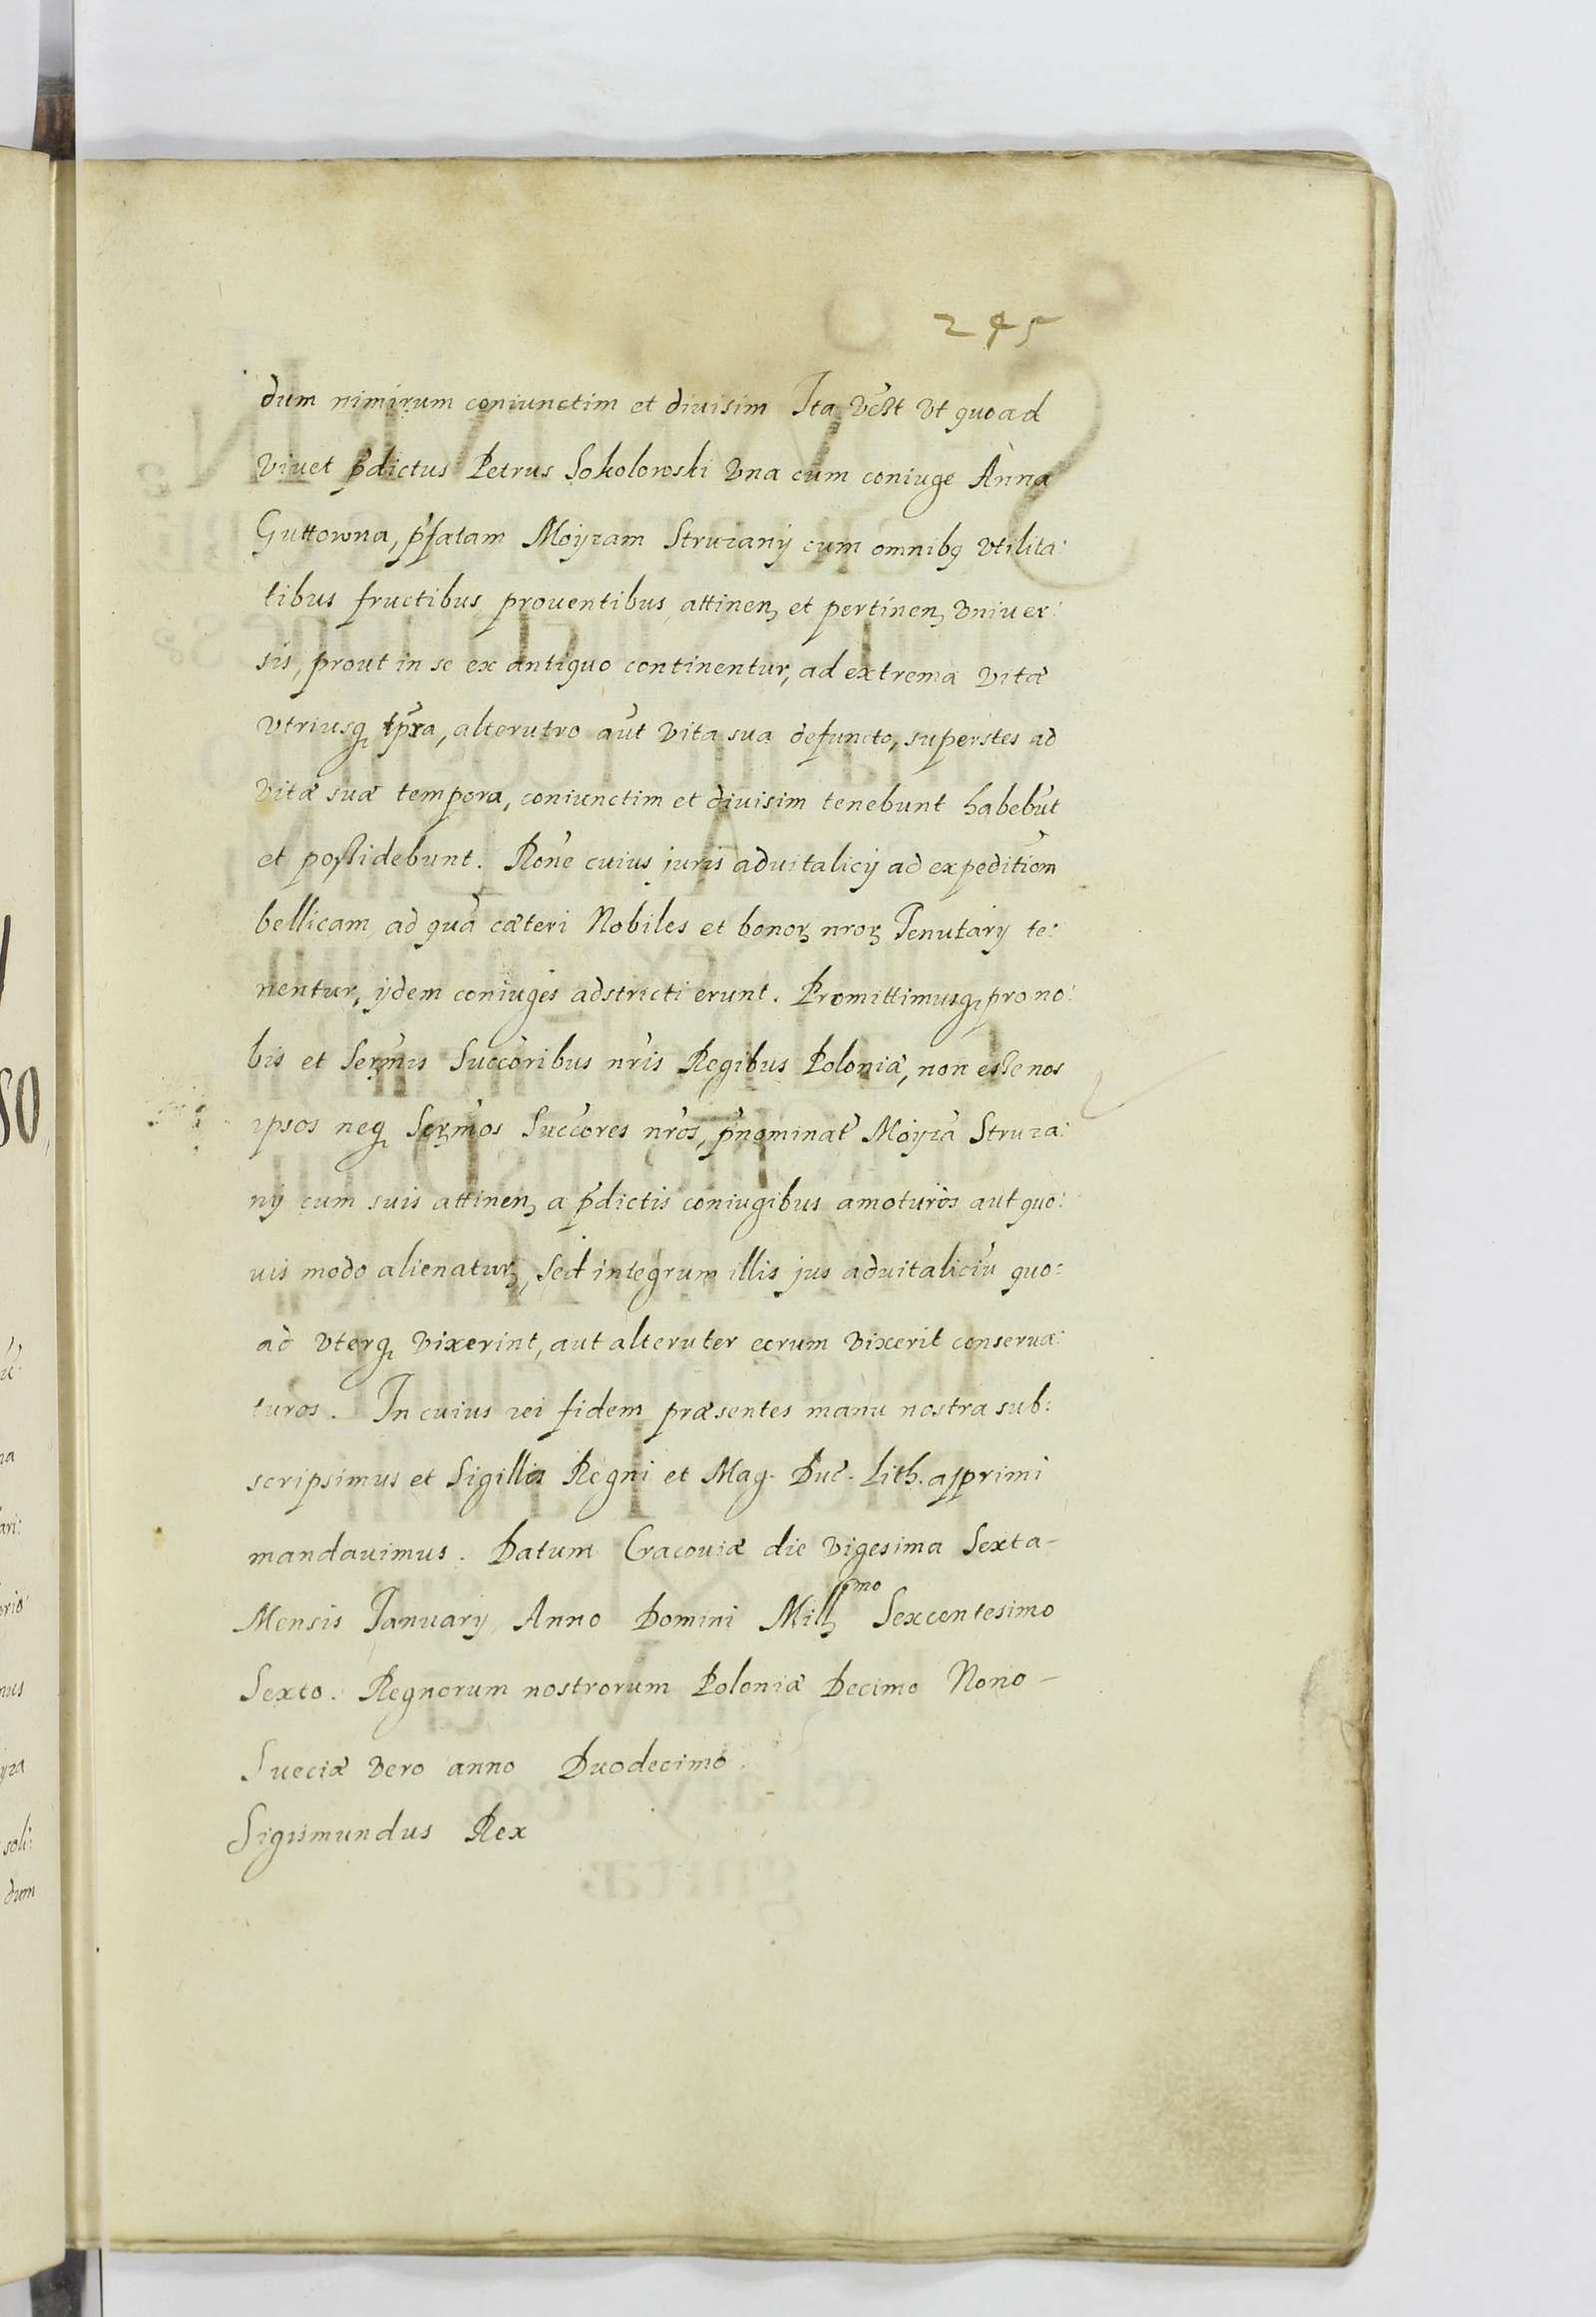 245
dum nimirum coniunctim et diuisim Ita vt quoad
viuet p̃dictus Petrus Sokolowski vna cum coniuge Anna
Guttowna, p̃fatam Moyzam Struzany cum omnibꝫ vtilita:
tibus fructibus prouentibus attinenꝫ et pertinenꝫ vniuer:
sis, prout in se ex antiquo continentur, ad extrema vitæ
vtriusqꝫ tp̃ra, alterutro aũt vita sua defuncto, superstes ad
vitæ suæ tempora, coniunctim et diuisim tenebunt habebũt
et possidebunt. Rone cuius juris aduitalicij ad expeditiom
bellicam, ad quã cæteri Nobiles et bonoꝝ nroꝝ Tenutarij te:
nentur, ijdem coniuges adstricti erunt. Promittimusqꝫ pro no:
bis et Serm̃is Succoribus nr̃is Regibus Poloniæ, non esse nos
ipsos neqꝫ Serm̃os Succores nr̃os, p̃nominat̃ Moyzã Struza:
nij cum suis attinenꝫ a p̃dictis coniugibus amoturos aut quo:
uis modo alienaturꝫ, sed integrum illis jus aduitaliciũ quo:
ad vterqꝫ vixerint, aut alteruter eorum vixerit conserua:
turos. In cuius rei fidem præsentes manu nostra sub:
scripsimus et Sigillis Regni et Mag. Duc̃. Lith. apprimi
mandauimus. Datum Cracouiæ die vigesima Sexta-
Mensis Ianuarij Anno Domini Millꝫmo Sexcentesimo
Sexto. Regnorum nostrorum Poloniæ Decimo Nono-
Sueciæ vero anno Duodecimo.
Sigismundus Rex
dum